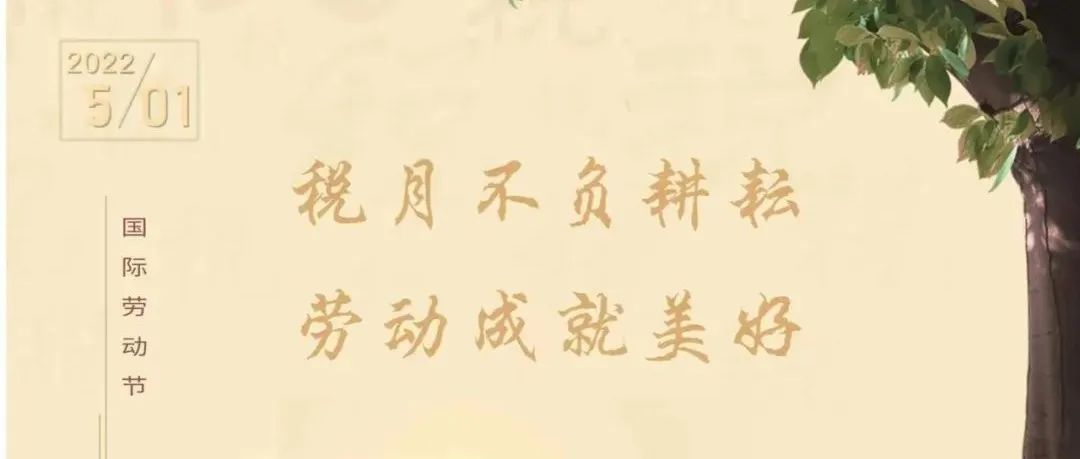 2022
5/01
国际劳动节
税月不负耕耘
劳动成就美好